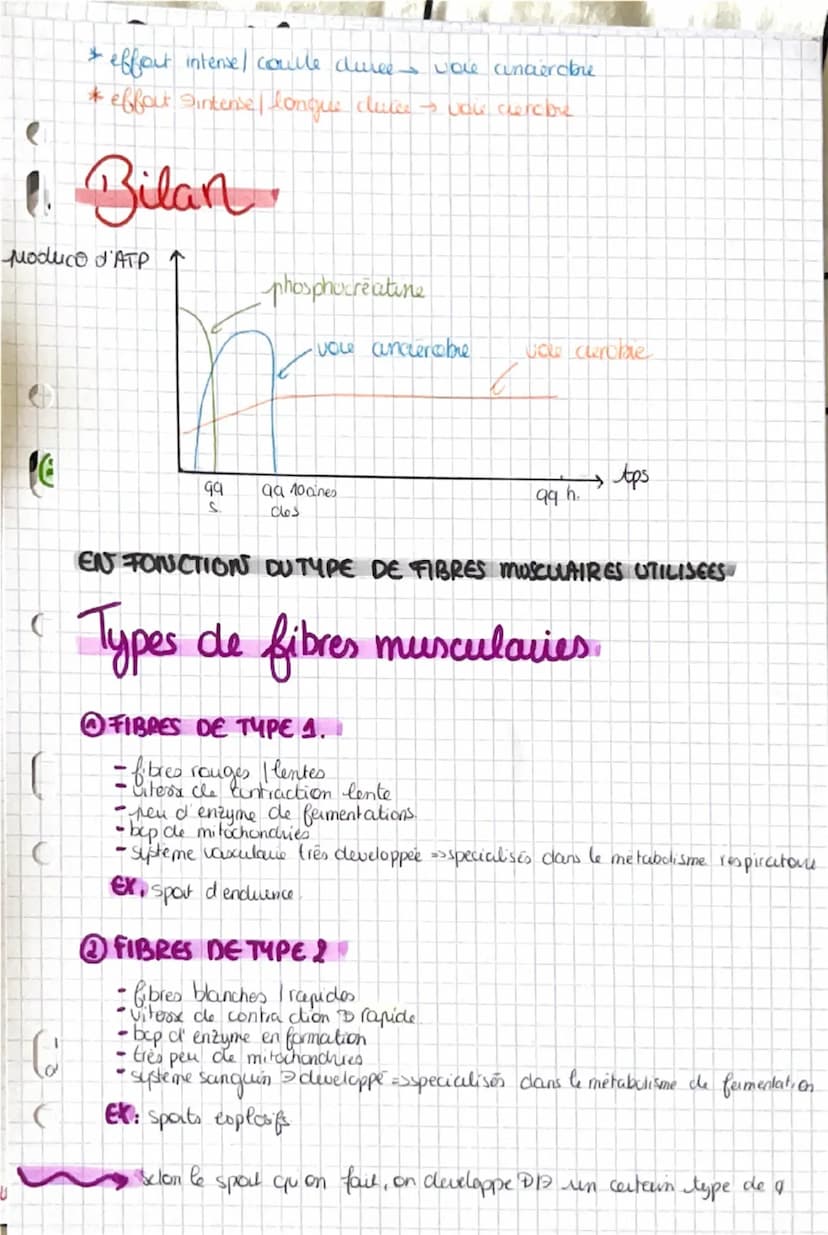 * effort intense/ courte duree → voie anaérobie
* effort intense/ longue duree → voie aerobie
Bilan
produco d'ATP
phosphocréatine
voie anaérobie
voie aerobie
tps
qq
s.
qq 10aines
des
qq h.
EN FONCTION DU TYPE DE FIBRES MUSCULAIRES UTILISEES
Types de fibres musculaires
① FIBRES DE TYPE 1.
- fibres rouges / lentes
- vitesse de contraction lente
- peu d'enzyme de fermentations
- bcp de mitochondries
- système vasculaire très developpée => specialisés dans le metabolisme respiratoire
Ex, sport d'endurence
② FIBRES DE TYPE 2
- fibres blanches / rapides
- vitesse de contraction rapide
- bcp d'enzyme en formation
- très peu de mitochondries
- système sanguin developpé => specialisés dans le métabolisme de fermentation
EX: sports explosifs
selon le sport qu on fait, on developpe un certain type de